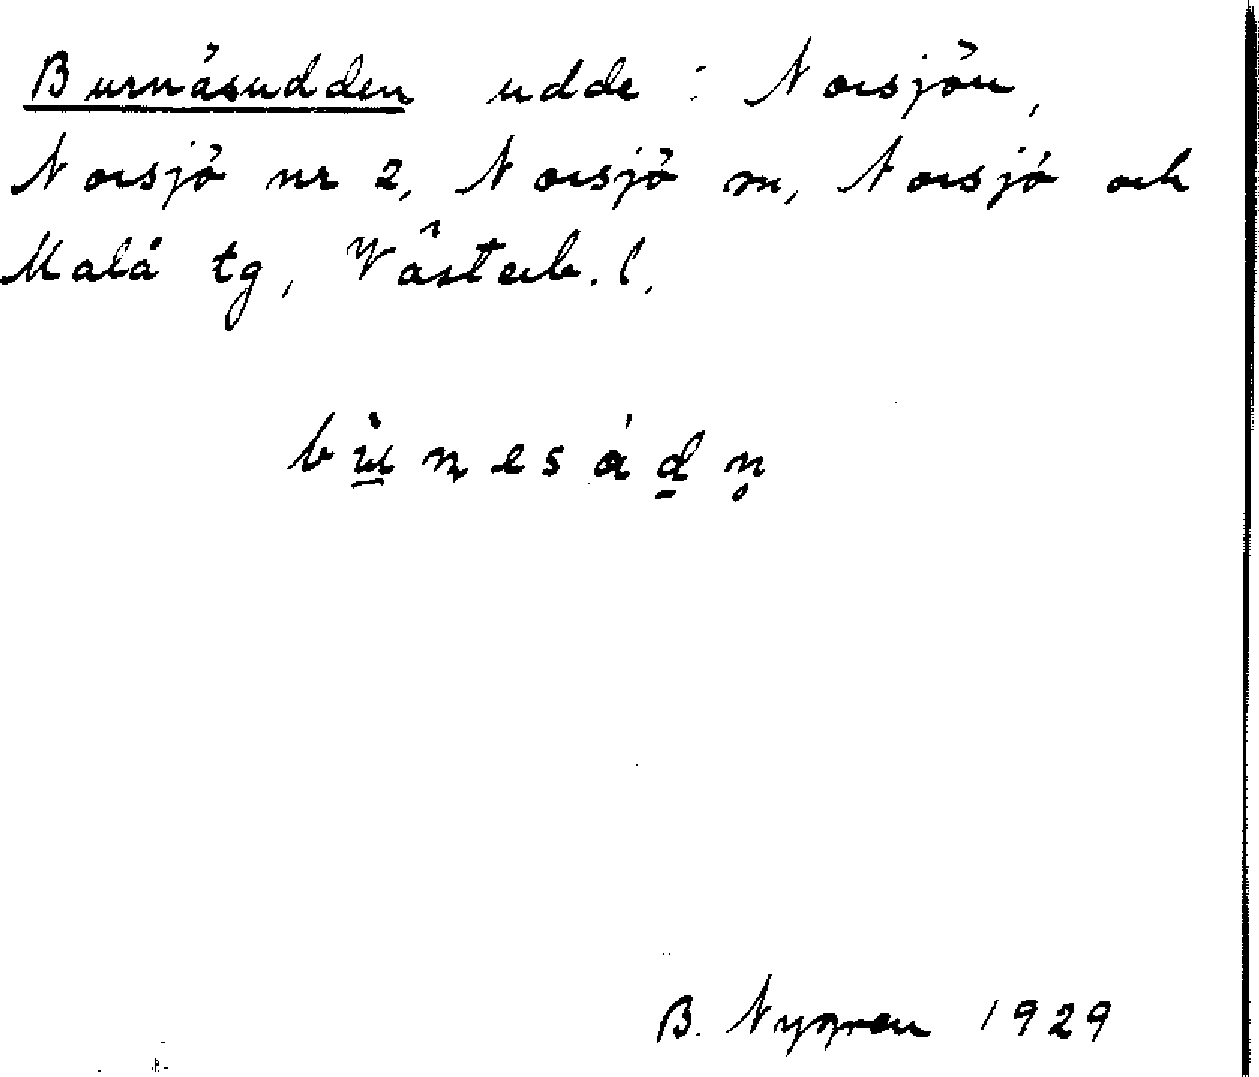 Burnäsudden udde i Norsjön,
Norsjö nr 2, Norsjö sn, Norsjö och
Malå tg, Västerb. l.
B. Nygren 1929